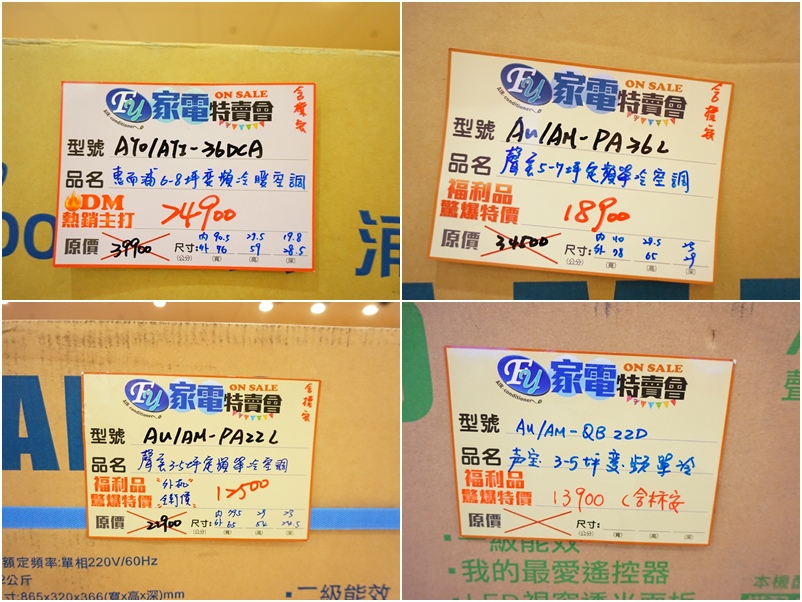 FY 家電特賣會 ON SALE
AIR-conditioner
含標安
型號 AYO/AYI-36DCA
品名 惠而浦6-8坪變頻冷暖空調
DM
熱銷主打 24900
原價 39900
尺寸:內 90.5 29.5 19.8
外 96 59 28.5
(公分) (寬) (高) (深)
FY 家電特賣會 ON SALE
AIR-conditioner
含標安
型號 AU/AM-PA36L
品名 聲寶5-7坪定頻單冷空調
福利品
驚爆特價 18900
原價 34500
尺寸:內 90 28.5 23
外 98 65 29
(公分) (寬) (高) (深)
FY 家電特賣會 ON SALE
AIR-conditioner
含標安
型號 AU/AM-PA22L
品名 聲寶3-5坪定頻單冷空調
福利品 "外机"
驚爆特價 "全新價" 12500
原價 22900
尺寸:內 79.5 29 23
外 65 54 24.5
(公分) (寬) (高) (深)
額定頻率:單相220V/60Hz
2公斤
寸:865x320x366(寬x高x深)mm
二級能效
FY 家電特賣會 ON SALE
AIR-conditioner
型號 AU/AM-QB22D
品名 声宝 3-5坪變頻單冷
福利品
驚爆特價 13900 (含标安
原價
尺寸:
(公分) (寬) (高) (深)
二級能效
·我的最愛遙控器